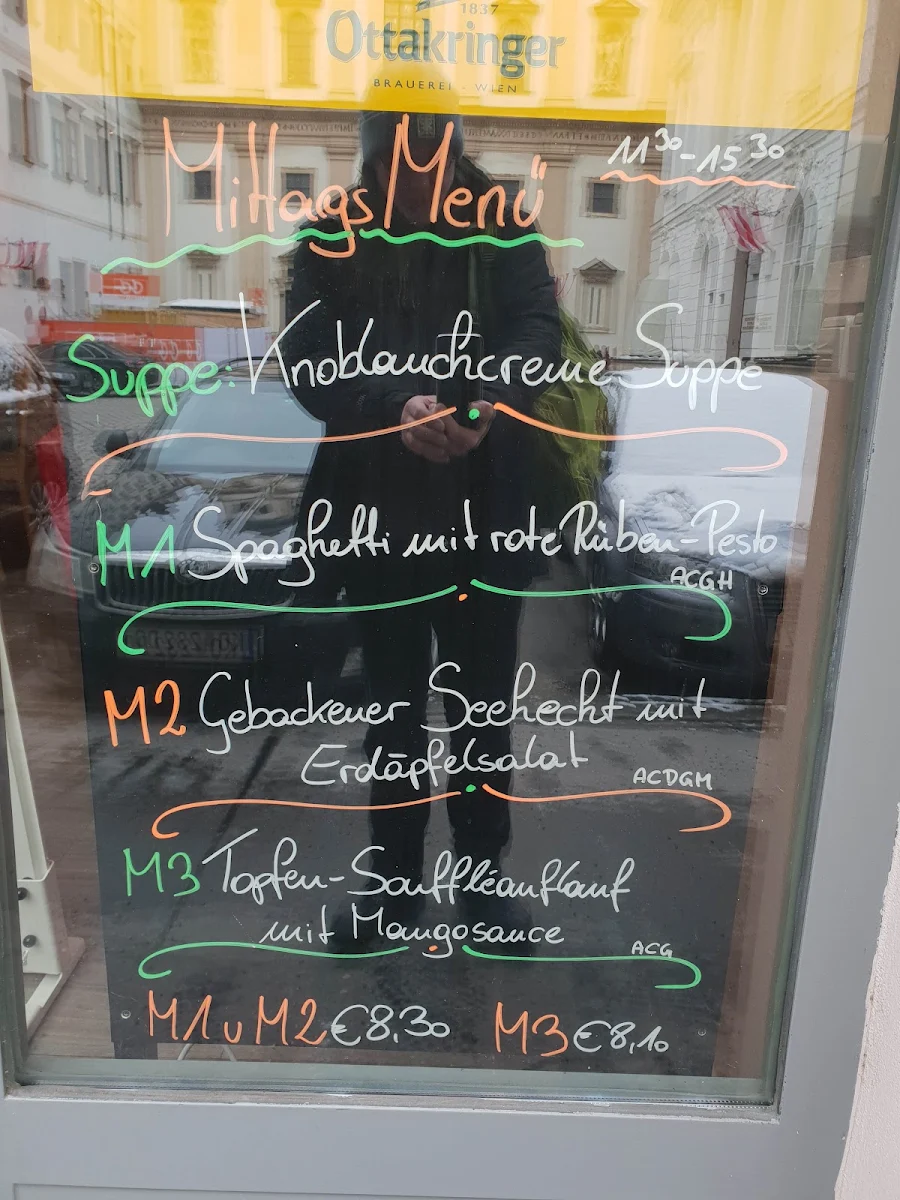 1837
Ottakringer
BRAUEREI - WIEN
MittagsMenü 11³⁰-15³⁰
Suppe: Knoblauchcreme Suppe
M1 Spaghetti mit rote Rüben-Pesto
ACGH
M2 Gebackener Seehecht mit
Erdäpfelsalat ACDGM
M3 Topfen-Souffléauflauf
mit Mangosauce ACG
M1 u M2 €8,30 M3 €8,10